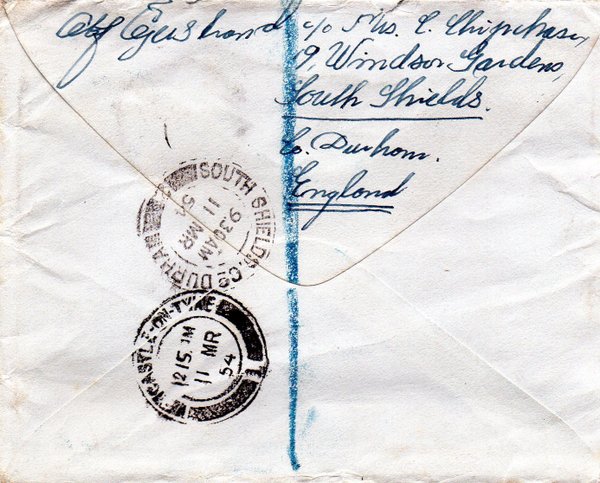 c/o Mrs. C. Chipchase,
19, Windsor Gardens,
South Shields.
Co. Durham.
England
SOUTH SHIELDS. Co DURHAM
930AM
11 MR
54
NEWCASTLE-ON-TYNE
1215 PM
11 MR
54
1